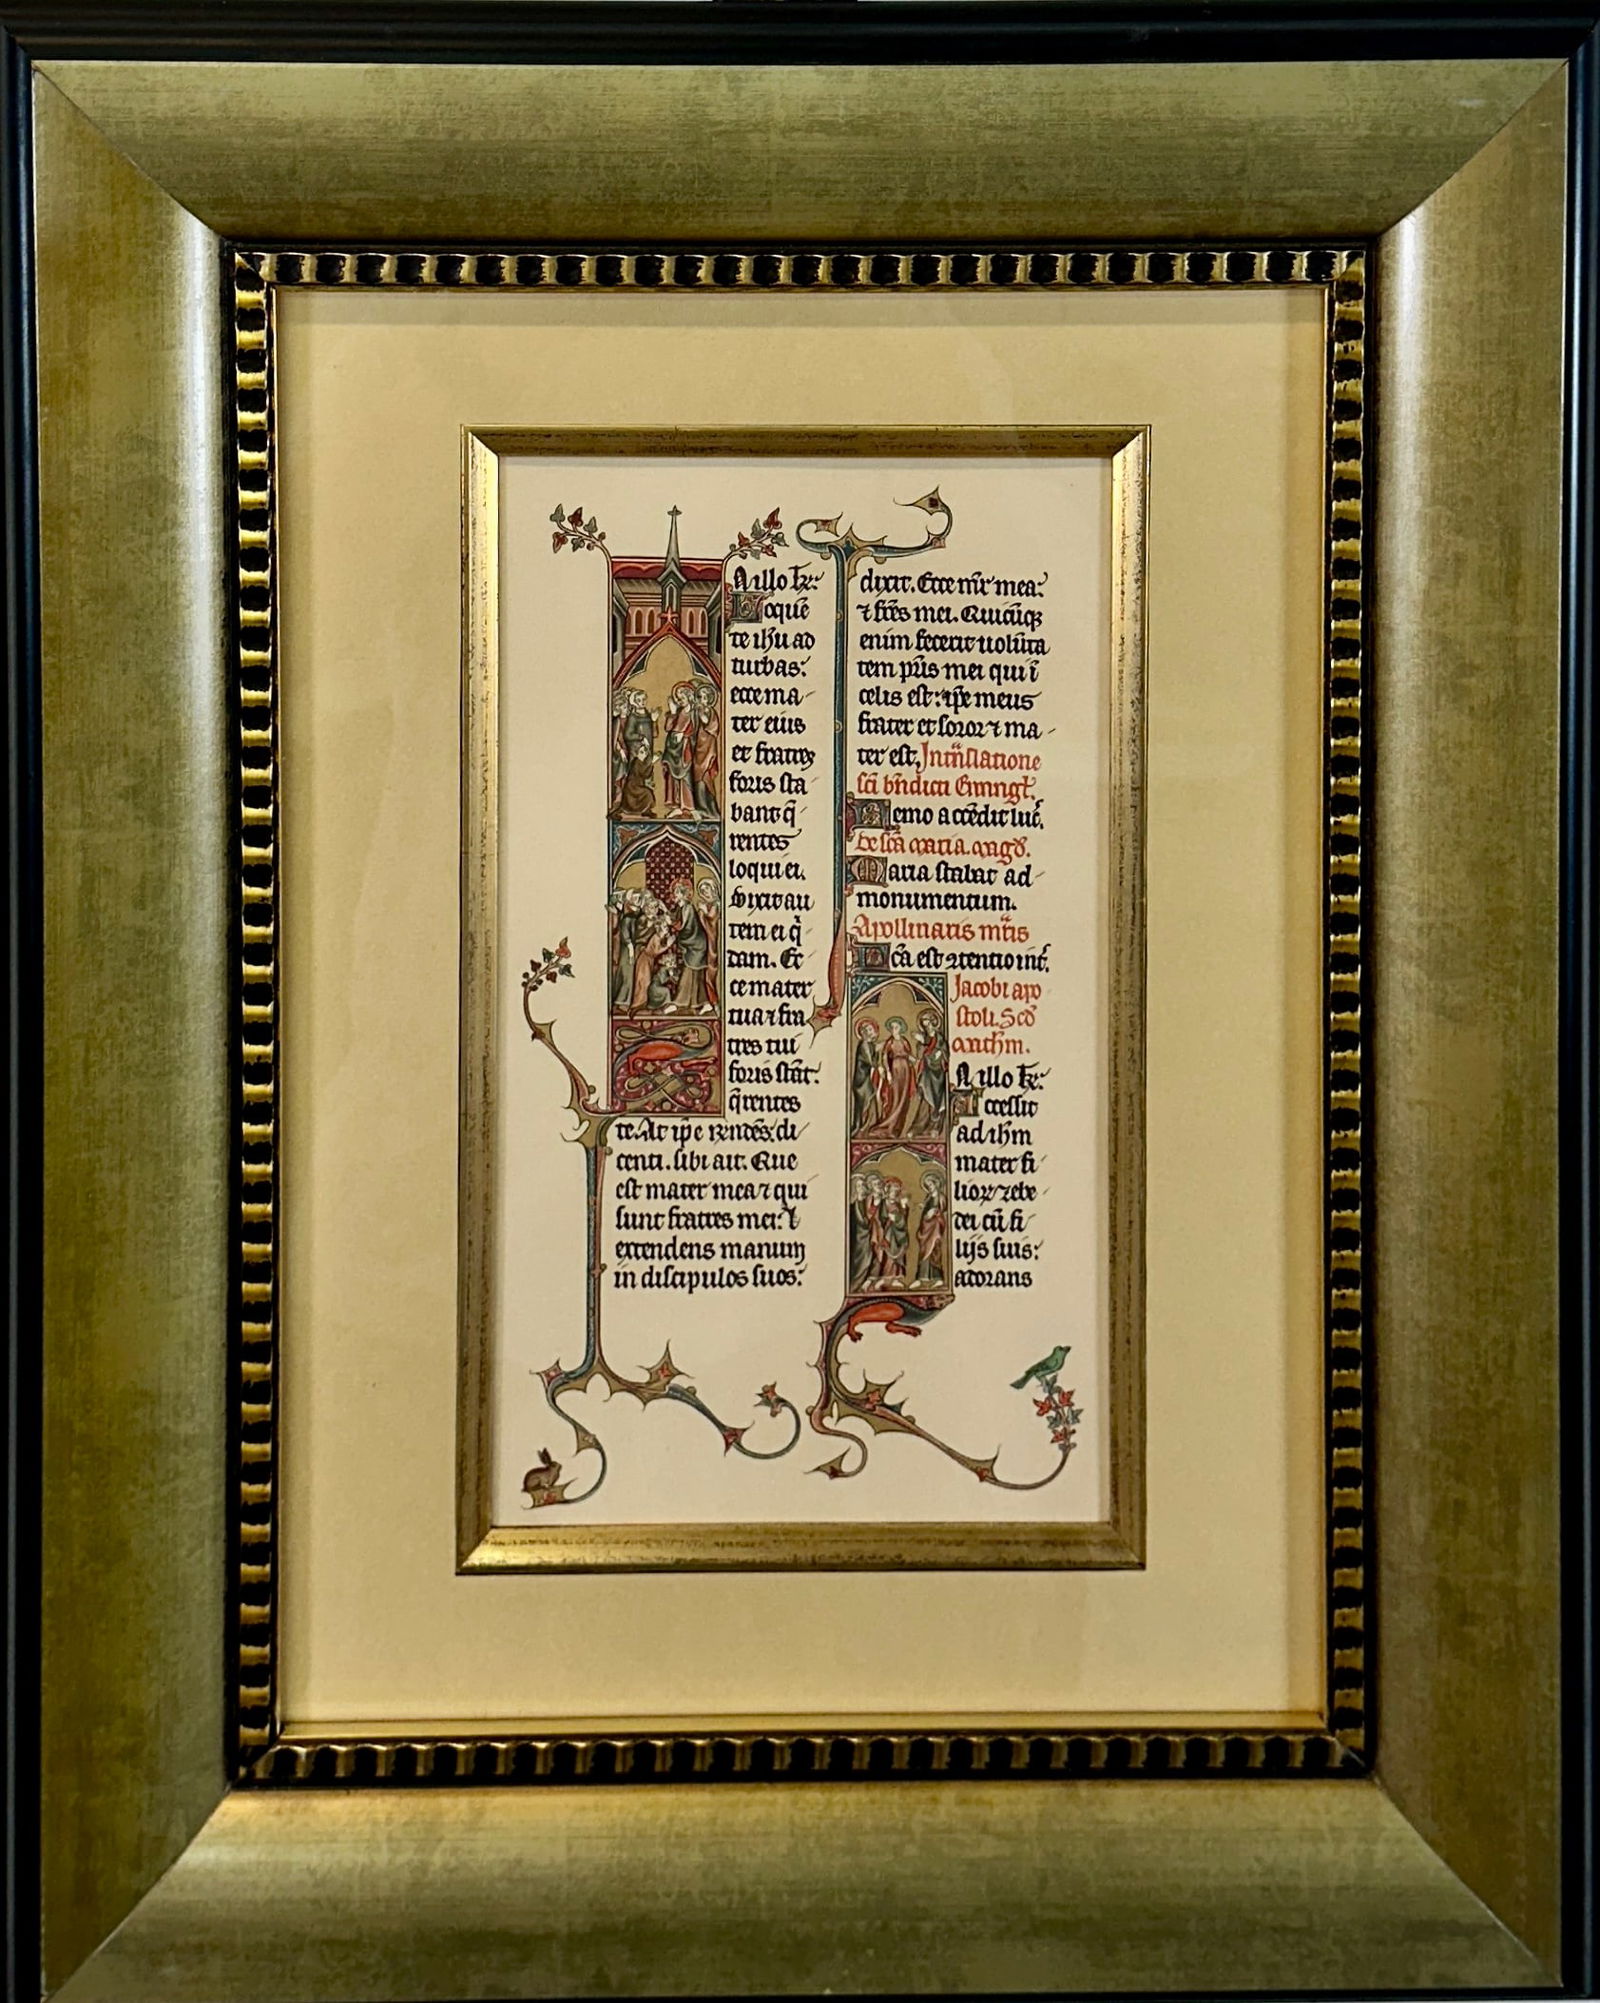 N illo t̄pr̄:
Loquē
te ih̄u ad
turbas:
ecce ma-
ter eius
et fratres
foris sta-
bant q̄-
rentes
loqui ei.
Dixit au
tem ei q̇
dam. Ec-
ce mater
tua ⁊ fra
tres tui
foris stāt.
q̄rentes
te. At ip̄e
centi. sibi ait. Que
est mater mea ⁊ qui
sunt fratres mei: ⁊
extendens manum
in discipulos suos:
dixit. Ecce mr̄ mea:
⁊ fr̄es mei. Quicūq
enim fecerit uolūta
tem pr̄is mei qui ī
celis est: ip̄e meus
frater et soror ⁊ ma-
ter est. In tn̄slatione
sc̄i bn̄dicti Ewngl̄.
Nemo accēdit luc̄.
De sc̄a maria. magd̄.
Maria stabat ad-
monumentum.
Apollinaris mr̄is
Fc̄a est ꝯtentio int̄.
Jacobi apo-
stoli. Scd̄
math̄m.
N illo t̄pr̄:
Accessit
ad ih̄m
mater fi-
lioꝝ zebe-
dei cū fi-
lijs suis:
adorans